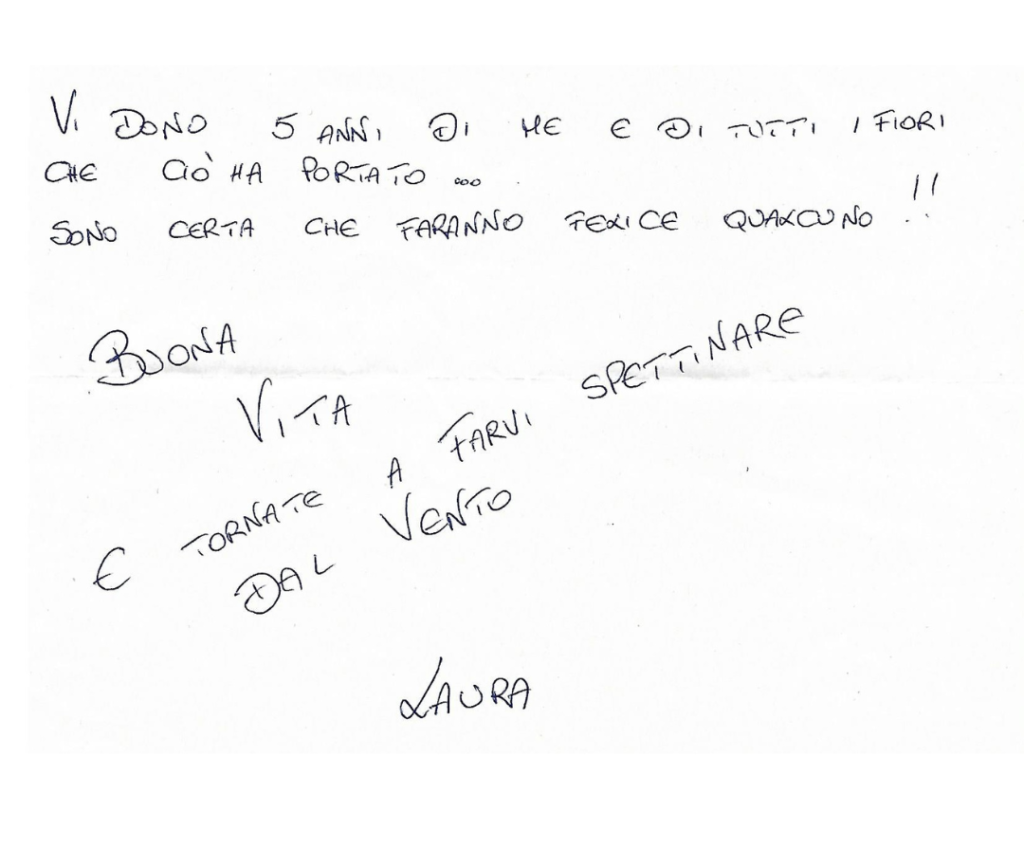 VI DONO 5 ANNI DI ME E DI TUTTI I FIORI
CHE CIÒ HA PORTATO ...
SONO CERTA CHE FARANNO FELICE QUALCUNO !!
BUONA
VITA
E TORNATE A FARVI SPETTINARE
DAL VENTO
LAURA